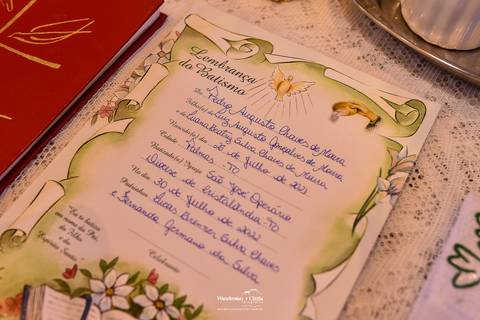 Lembrança
do Batismo
De Pedro Augusto Chaves de Moura
Filho(a) de Luiz Augusto Gonçalves de Moura
e de Luana Beatriz Silva Chaves de Moura
Nascido(a) dia 26 de Julho de 2021
Cidade Palmas - TO
Batizado(a) Igreja São José Operário
Diocese de Cristalândia-TO
No dia 30 de Julho de 2022
Padrinhos Lucas Brenner Silva Chaves
e Fernanda Germano da Silva
Celebrante
"Eu te batizo
em nome do Pai,
do Filho
e do
Espírito Santo."